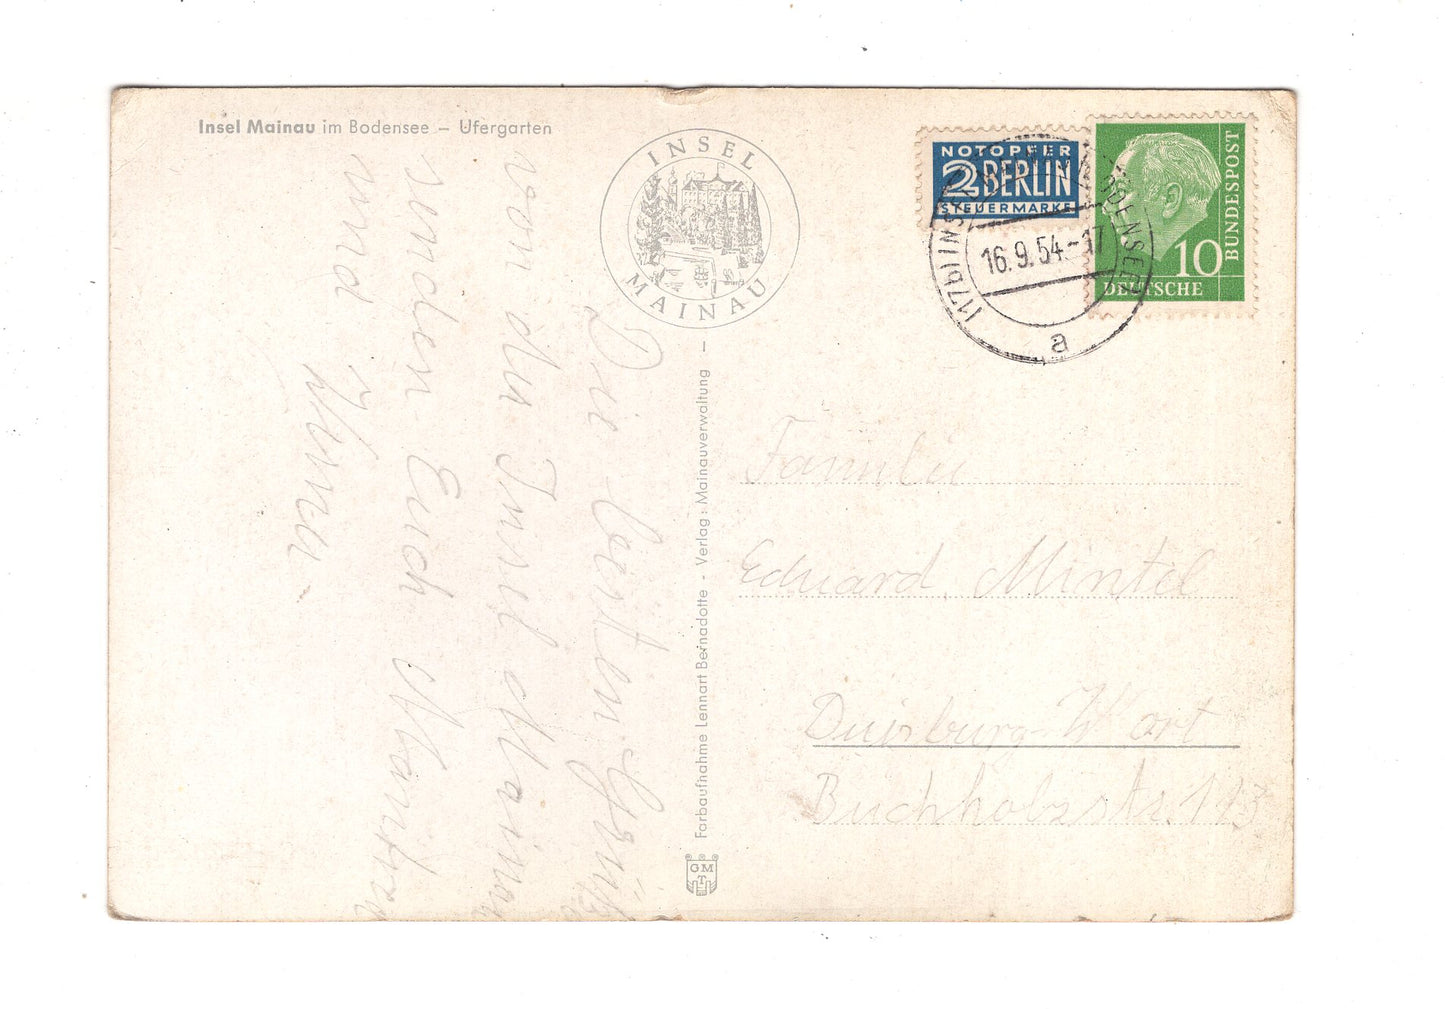 Insel Mainau im Bodensee – Ufergarten
INSEL
MAINAU
NOTOPFER
2 BERLIN
STEUERMARKE
DEUTSCHE
BUNDESPOST
10
(17b) INSEL MAINAU (BODENSEE)
16.9.54.-17
a
Die besten Grüße
von der Insel Mainau
senden Euch
und
Familie
Eduard Mintel
Duisburg-Wort
Buchholzstr. 113
Farbaufnahme Lennart Bernadotte - Verlag: Mainauverwaltung –
GMT